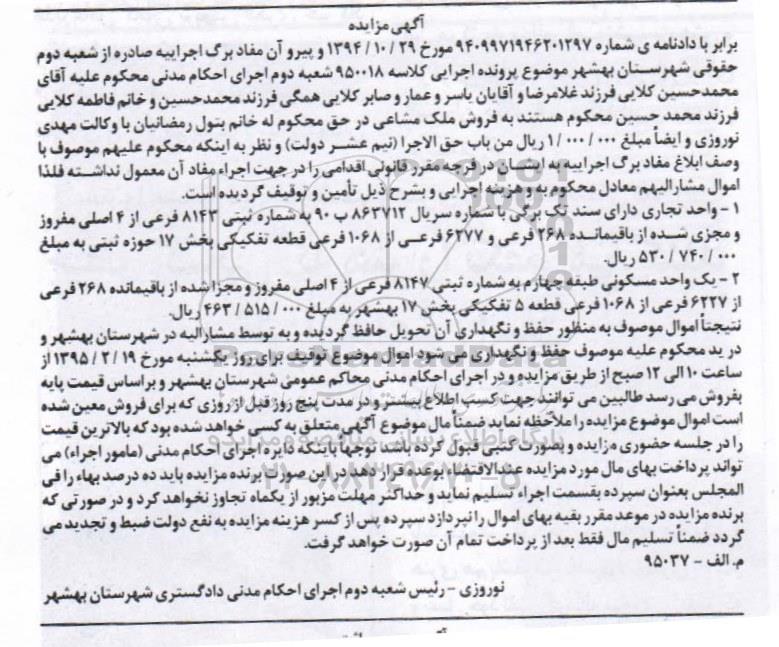 آگهی مزایده
برابر با دادنامه ی شماره ۹۴۰۹۹۷۱۹۴۶۲۰۱۲۹۷ مورخ ۲۹ / ۱۰ / ۱۳۹۴ و پیرو آن مفاد برگ اجراییه صادره از شعبه دوم
حقوقی شهرستان بهشهر موضوع پرونده اجرایی کلاسه ۹۵۰۰۱۸ شعبه دوم اجرای احکام مدنی محکوم علیه آقای
محمدحسین کلایی فرزند غلامرضا و آقایان یاسر و عمار و صابر کلایی همگی فرزند محمدحسین و خانم فاطمه کلایی
فرزند محمد حسین محکوم هستند به فروش ملک مشاعی در حق محکوم له خانم بتول رمضانیان با وکالت مهدی
نوروزی و ایضاً مبلغ ۰۰۰ / ۰۰۰ / ۱ ریال من باب حق الاجرا (نیم عشر دولت) و نظر به اینکه محکوم علیهم موصوف با
وصف ابلاغ مفاد برگ اجراییه به ایشان در فرجه مقرر قانونی اقدامی را در جهت اجراء مفاد آن معمول نداشته فلذا
اموال مشارالیهم معادل محکوم به و هزینه اجرایی و بشرح ذیل تأمین و توقیف گردیده است.
۱ - واحد تجاری دارای سند تک برگی با شماره سریال ۸۶۳۷۱۲ ب ۹۰ به شماره ثبتی ۸۱۴۳ فرعی از ۴ اصلی مفروز
و مجزی شده از باقیمانده ۲۶۸ فرعی و ۶۲۷۷ فرعی از ۱۰۶۸ فرعی قطعه تفکیکی بخش ۱۷ حوزه ثبتی به مبلغ
۰۰۰ / ۷۴۰ / ۵۳۰ ریال.
۲ - یک واحد مسکونی طبقه چهارم به شماره ثبتی ۸۱۴۷ فرعی از ۴ اصلی مفروز و مجزا شده از باقیمانده ۲۶۸ فرعی
از ۶۲۲۷ فرعی از ۱۰۶۸ فرعی قطعه ۵ تفکیکی بخش ۱۷ بهشهر به مبلغ ۰۰۰ / ۵۱۵ / ۴۶۳ ریال.
نتیجتاً اموال موصوف به منظور حفظ و نگهداری آن تحویل حافظ گردیده و به توسط مشارالیه در شهرستان بهشهر و
در ید محکوم علیه موصوف حفظ و نگهداری می شود اموال موضوع توقیف برای روز یکشنبه مورخ ۱۹ / ۲ / ۱۳۹۵ از
ساعت ۱۰ الی ۱۲ صبح از طریق مزایده و در اجرای احکام مدنی محاکم عمومی شهرستان بهشهر و براساس قیمت پایه
بفروش می رسد طالبین می توانند جهت کسب اطلاع بیشتر و در مدت پنج روز قبل از روزی که برای فروش معین شده
است اموال موضوع مزایده را ملاحظه نماید ضمناً مال موضوع آگهی متعلق به کسی خواهد شده بود که بالاترین قیمت
را در جلسه حضوری مزایده و بصورت کتبی قبول کرده باشد توجهاً باینکه دایره اجرای احکام مدنی (مامور اجراء) می
تواند پرداخت بهای مال مورد مزایده عندالاقتضاء بوعده قرار دهد در این صورت برنده مزایده باید ده درصد بهاء را فی
المجلس بعنوان سپرده بقسمت اجراء تسلیم نماید و حداکثر مهلت مزبور از یکماه تجاوز نخواهد کرد و در صورتی که
برنده مزایده در موعد مقرر بقیه بهای اموال را نپردازد سپرده پس از کسر هزینه مزایده به نفع دولت ضبط و تجدید می
گردد ضمناً تسلیم مال فقط بعد از پرداخت تمام آن صورت خواهد گرفت.
م. الف - ۹۵۰۳۷
نوروزی - رئیس شعبه دوم اجرای احکام مدنی دادگستری شهرستان بهشهر
ParsNamadData
پایگاه اطلاع رسانی مناقصه و مزایده
۰۲۱-۸۸۳۴۹۶۷۰-۵